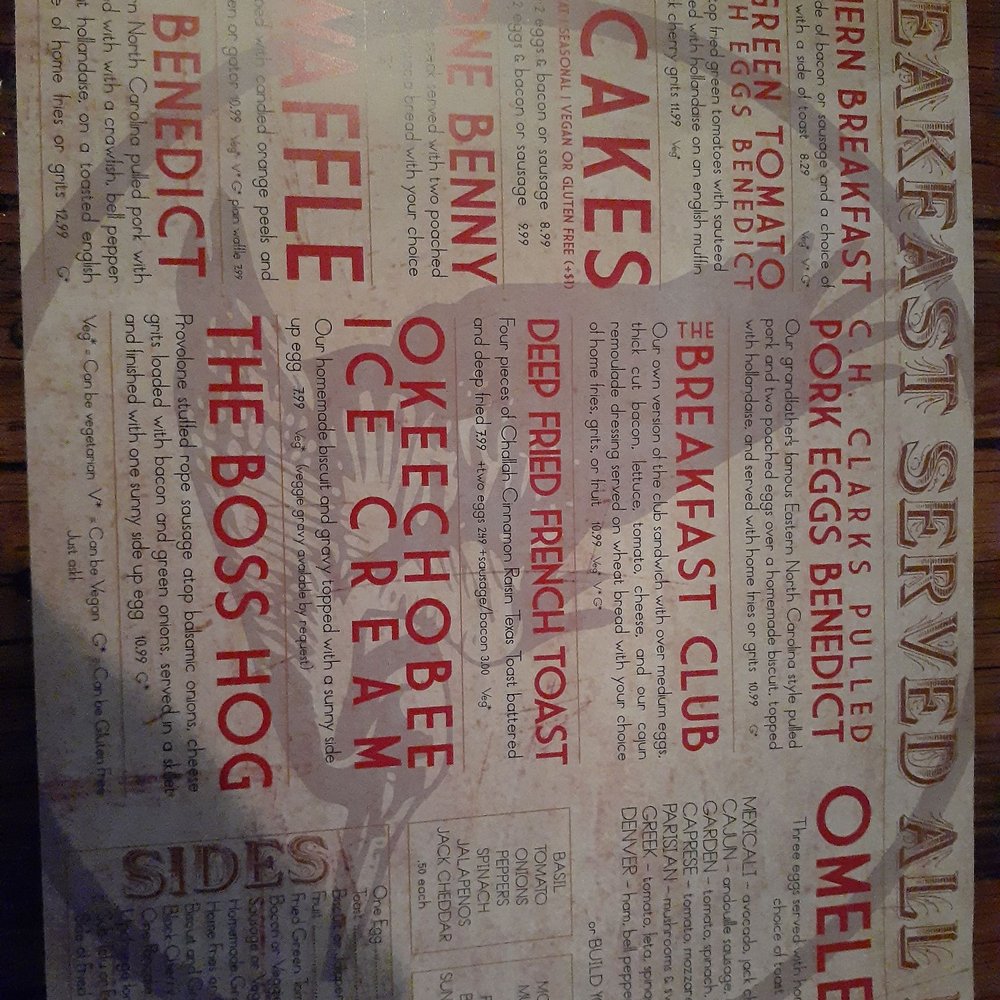 EAKFAST SERVED ALL
HERN BREAKFAST
de of bacon or sausage and a choice of
with a side of toast 8.29 Veg* V* G*
GREEN TOMATO
H EGGS BENEDICT
top fried green tomatoes with sauteed
ed with hollandaise on an english muffin
k cherry grits 11.99 Veg*
CAKES
SEASONAL | VEGAN OR GLUTEN FREE (+$1)
2 eggs & bacon or sausage 8.99
2 eggs & bacon or sausage 9.99
ONE BENNY
served with two poached
bread with your choice
WAFFLE
with candied orange peels and
en or gator 10.99 Veg* V* G* plain waffle 7.99
BENEDICT
n North Carolina pulled pork with
d with with a crawfish, bell pepper
t hollandaise, on a toasted english
e of home fries or grits 12.99 G*
C.H. CLARKS PULLED
PORK EGGS BENEDICT
Our grandfathers famous Eastern North Carolina style pulled
pork and two poached eggs over a homemade biscuit, topped
with hollandaise, and served with home fries or grits 10.99 G*
THE BREAKFAST CLUB
Our own version of the club sandwich with over medium eggs,
thick cut bacon, lettuce, tomato, cheese, and our cajun
remoulade dressing served on wheat bread with your choice
of home fries, grits, or fruit 10.99 Veg* G*
DEEP FRIED FRENCH TOAST
Four pieces of Challah Cinnamon Raisin Texas Toast battered
and deep fried 7.99 +two eggs 2.49 +sausage/bacon 3.00 Veg*
OKEECHOBEE
ICE CREAM
Our homemade biscuit and gravy topped with a sunny side
up egg 7.99 Veg* (veggie gravy available by request)
THE BOSS HOG
Provolone stuffed rope sausage atop balsamic onions, cheese
grits loaded with bacon and green onions, served in a skillet
and finished with one sunny side up egg 10.99 G*
Veg* = Can be vegetarian V* = Can be Vegan G* = Can be Gluten Free
Just ask!
OMELE
Three eggs served with ho
choice of toast
MEXICALI - avocado, jack c
CAJUN - andouille sausage,
GARDEN - tomato, spinach,
CAPRESE - tomato, mozzare
PARISIAN - mushrooms & s
GREEK - tomato, feta, spina
DENVER - ham, bell peppe
or BUILD YO
BASIL
TOMATO
ONIONS
PEPPERS
SPINACH
JALAPENOS
JACK CHEDDAR
.50 each
MO
MU
SUN
SIDES
One Egg
Toast
Fruit
Fried Green Tom
Bacon or Vegg
Sausage or
Homemade Gr
Home Fries or
Biscuit and G
Black Cherry